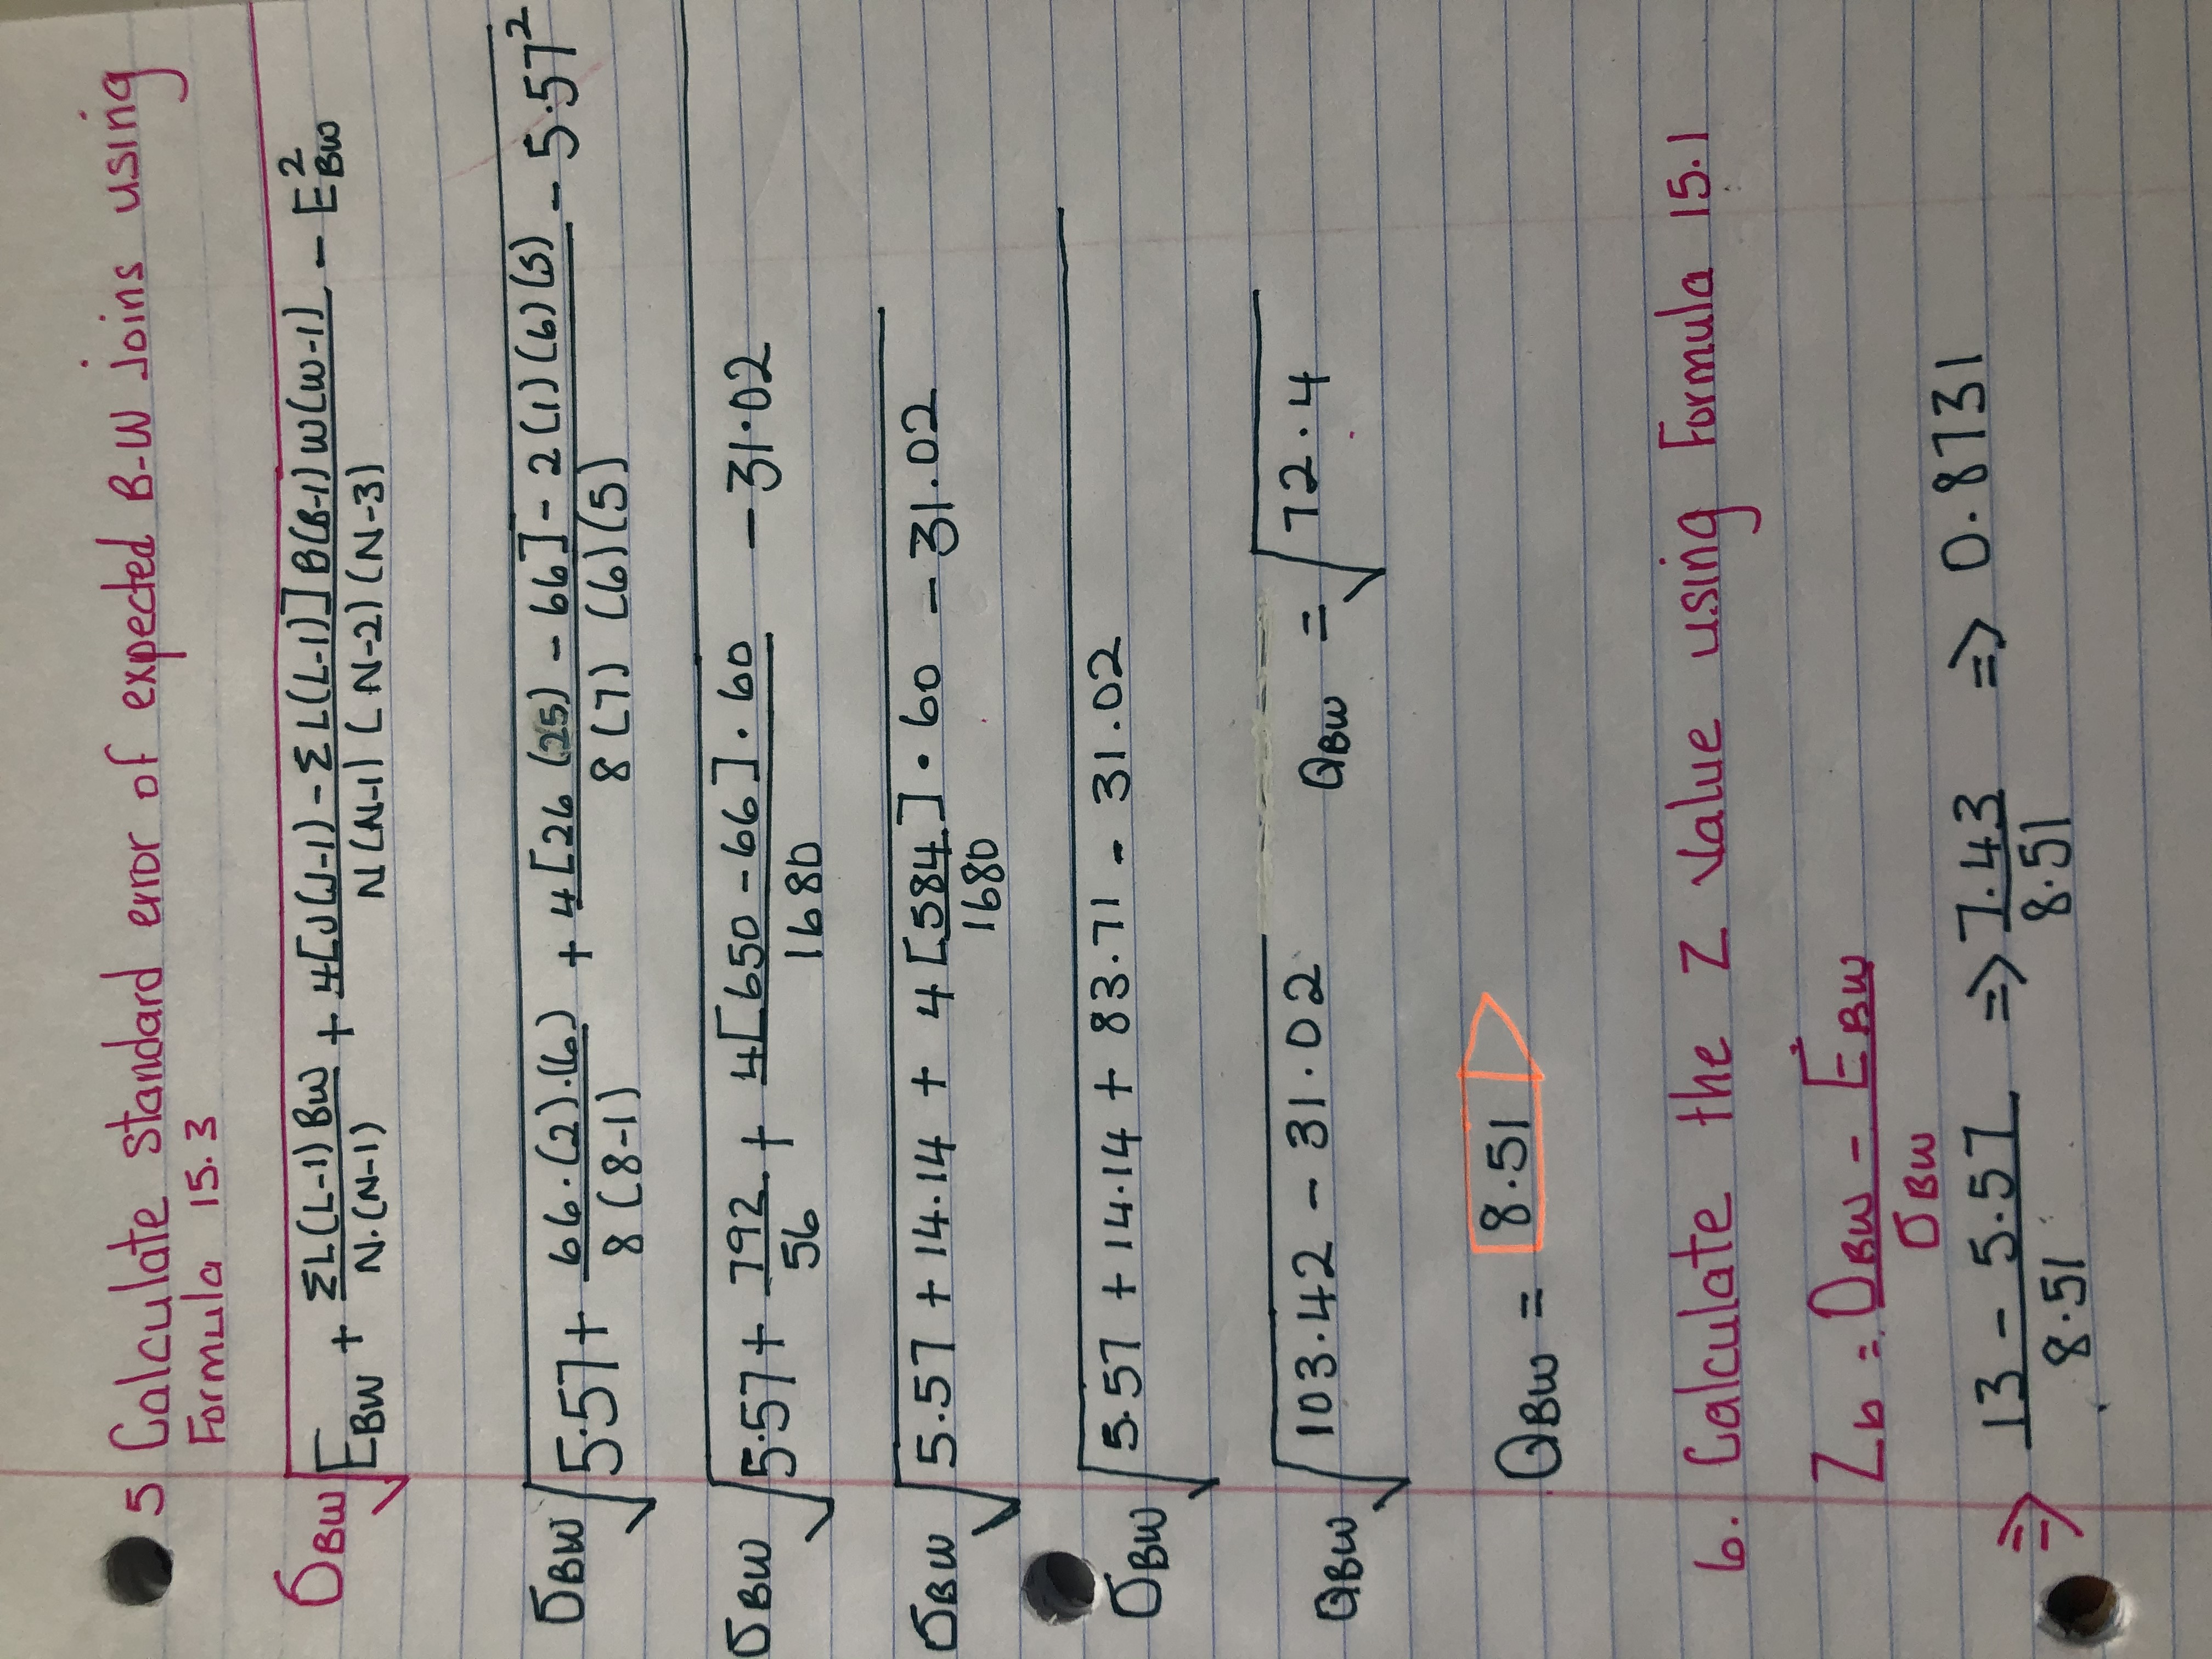 5 Calculate standard error of expected B-W Joins using
Formula 15.3
σBW √ EBW + ΣL(L-1) BW / N.(N-1) + 4[J(J-1) - ΣL(L-1)] B(B-1) W(W-1) / N(N-1) (N-2) (N-3) - E²BW
σBW √ 5.57 + 66.(2).(6) / 8(8-1) + 4[26(25) - 66] - 2(1)(6)(5) / 8(7) (6)(5) - 5.57²
σBW √ 5.57 + 792 / 56 + 4[650 - 66] . 60 / 1680 - 31.02
σBW √ 5.57 + 14.14 + 4[584] . 60 / 1680 - 31.02
σBW √ 5.57 + 14.14 + 83.71 - 31.02
QBW √ 103.42 - 31.02 QBW = √ 72.4
QBW = 8.51
6. Calculate the Z Value using Formula 15.1
Zb = OBW - EBW / σBW
⇒ 13 - 5.57 / 8.51 ⇒ 7.43 / 8.51 ⇒ 0.8731